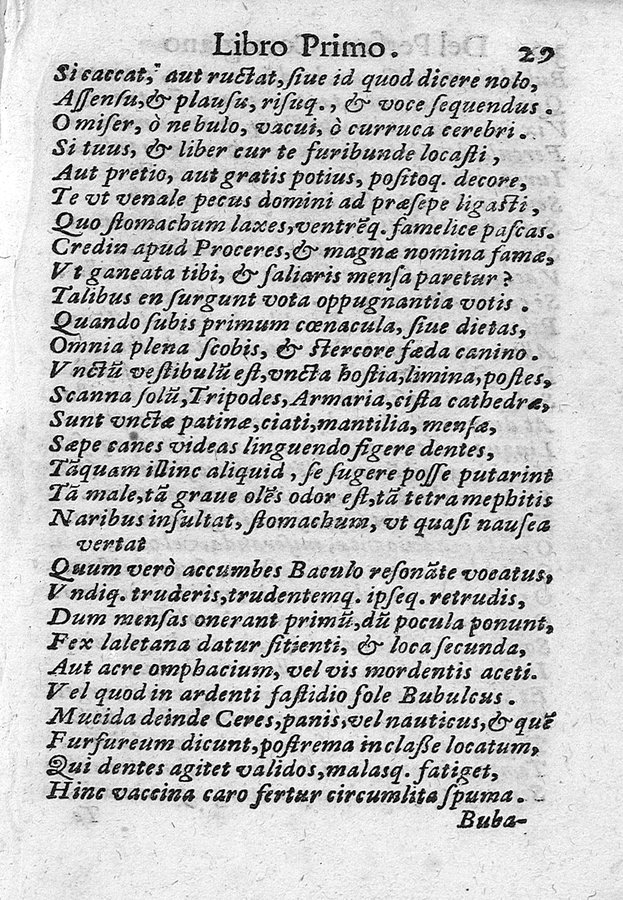 Libro Primo. 29
Si caccat, aut ructat, ſiue id quod dicere nolo,
Aſſenſu, & plauſu, riſuq., & voce ſequendus.
O miſer, ò nebulo, vacui, ò curruca cerebri.
Si tuus, & liber cur te furibunde locaſti,
Aut pretio, aut gratis potius, poſitoq. decore,
Te vt venale pecus domini ad præſepe ligaſti,
Quo ſtomachum laxes, ventrẽq. famelice paſcas.
Credin apud Proceres, & magnæ nomina famæ,
Vt ganeata tibi, & ſaliaris menſa paretur?
Talibus en ſurgunt vota oppugnantia votis.
Quando ſubis primum cœnacula, ſiue dietas,
Omnia plena ſcobis, & ſtercore fæda canino.
Vnctũ veſtibulũ eſt, vncta hoſtia, limina, poſtes,
Scanna ſolũ, Tripodes, Armaria, ciſta cathedræ,
Sunt vnctæ patinæ, ciati, mantilia, menſæ,
Sæpe canes videas linguendo figere dentes,
Tãquam illinc aliquid, ſe ſugere poſſe putarint
Tã male, tã graue olẽs odor eſt, tã tetra mephitis
Naribus inſultat, ſtomachum, vt quaſi nauſea
vertat
Quum verò accumbes Baculo reſonãte vocatus,
Vndiq. truderis, trudentemq. ipſeq. retrudis,
Dum menſas onerant primũ, dũ pocula ponunt,
Fex laletana datur ſitienti, & loca ſecunda,
Aut acre omphacium, vel vis mordentis aceti.
Vel quod in ardenti faſtidio ſole Bubulcus.
Mucida deinde Ceres, panis, vel nauticus, & quẽ
Furfureum dicunt, poſtrema in claſſe locatum,
Qui dentes agitet validos, malasq. fatiget,
Hinc vaccina caro fertur circumlita ſpuma.
Buba-